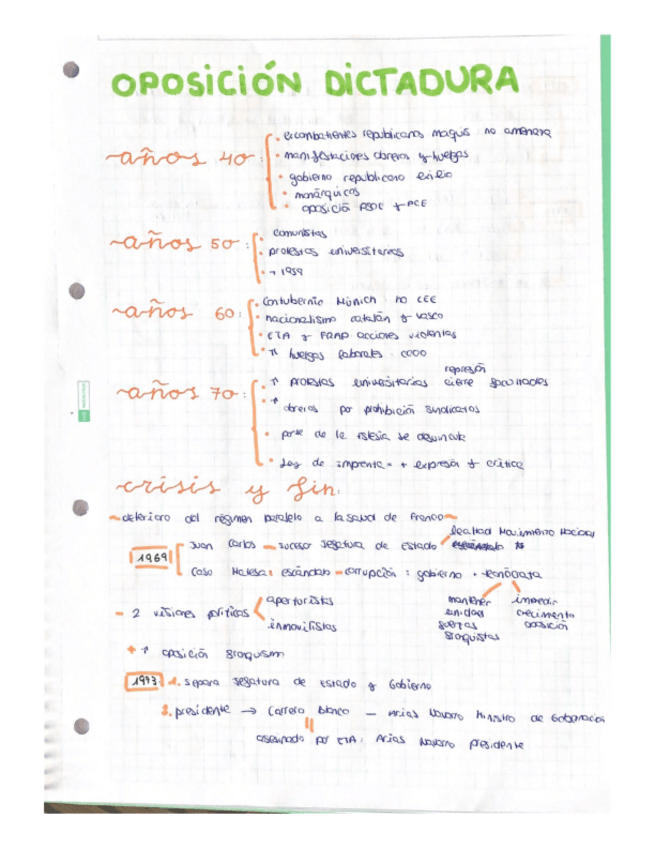 OPOSICIÓN DICTADURA
años 40:
• excombatientes republicanos maquis no amenaza
• manifestaciones obreras y huelgas
• gobierno republicano exilio
• monárquicos
• oposición PSOE + PCE
años 50:
• comunistas
• protestas universitarias
• → 1959
años 60:
• Contubernio Múnich no CEE
• nacionalismo catalán y vasco
• ETA y FRAP acciones violentas
• ↑↑ huelgas laborales CCOO
años 70:
• ↑ protestas universitarias represión cierre facultades
• ↑ obreros por prohibición sindicatos
• parte de la iglesia se desvincula
• Ley de imprenta = + expresión y crítica
crisis y fin:
- deterioro del régimen paralelo a la salud de Franco
1969
Juan Carlos - sucesor jefatura de Estado
lealtad Movimiento Nacional
Caso Matesa: escándalo - corrupción: gobierno + tecnócrata
mantener unidas fuerzas franquistas
impedir crecimiento oposición
- 2 visiones políticas
aperturistas
inmovilistas
+ ↑ oposición franquism
1973 1. separa jefatura de Estado y Gobierno
2. presidente → Carrero Blanco - Arias Navarro Ministro de Gobernación
asesinado por ETA: Arias Navarro presidente